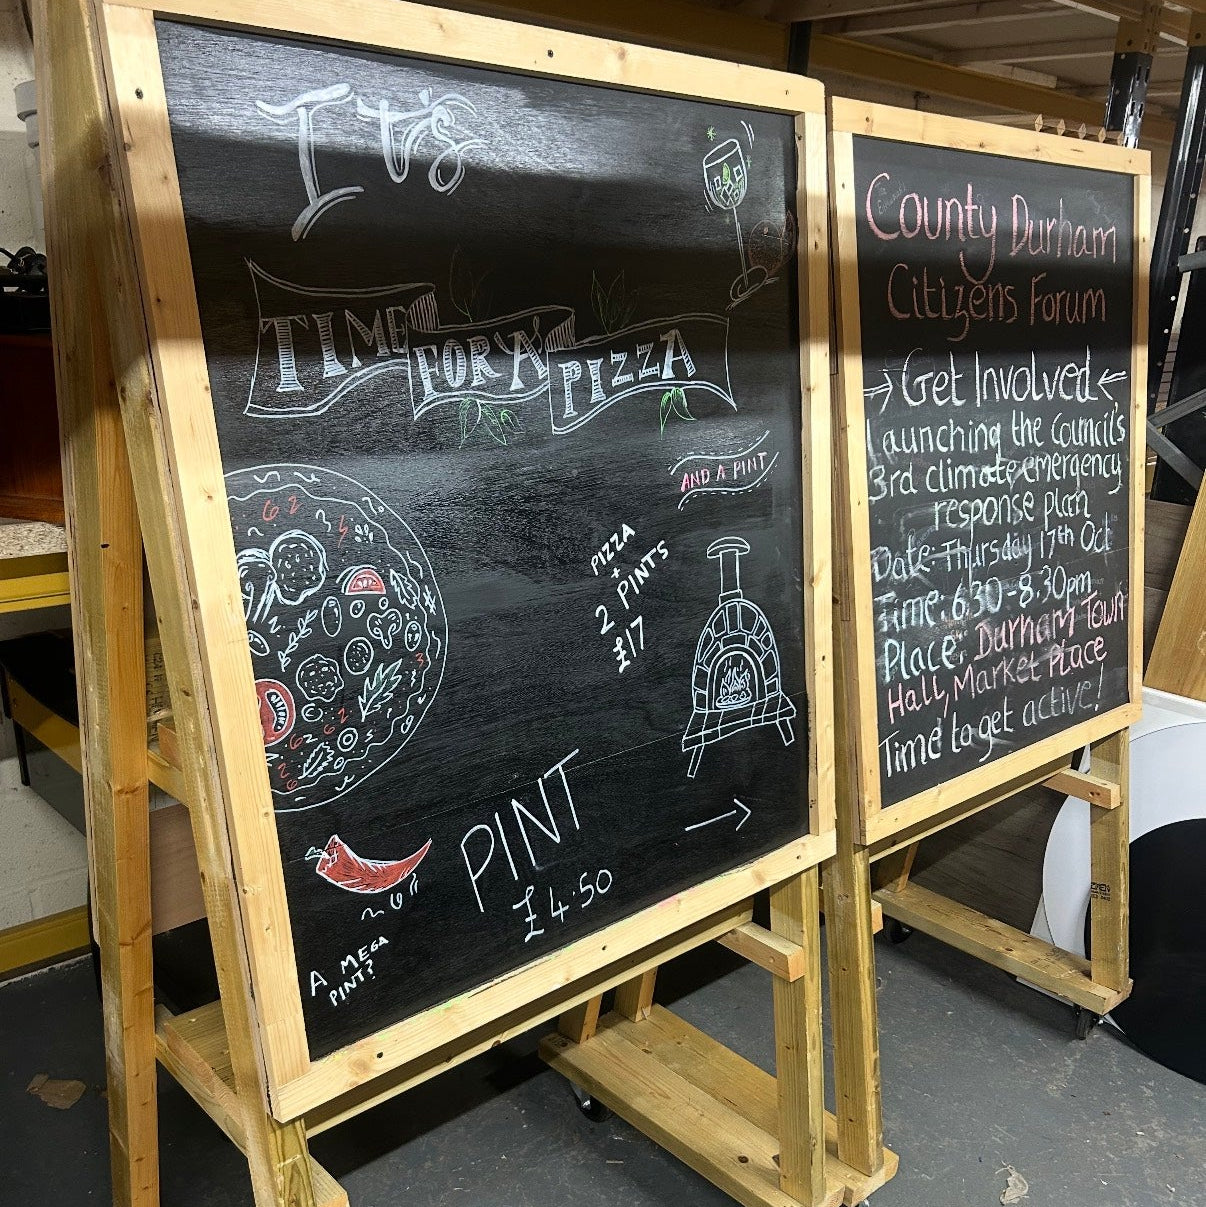 It's
TIME FOR A PIZZA
AND A PINT
PIZZA
+
2 PINTS
£17
PINT
£4.50
A MEGA
PINT?
County Durham
Citizens Forum
→ Get Involved ←
Launching the Council's
3rd climate emergency
response plan
Date: Thursday 17th Oct
Time: 6.30-8.30pm
Place: Durham Town
Hall, Market Place
Time to get active!